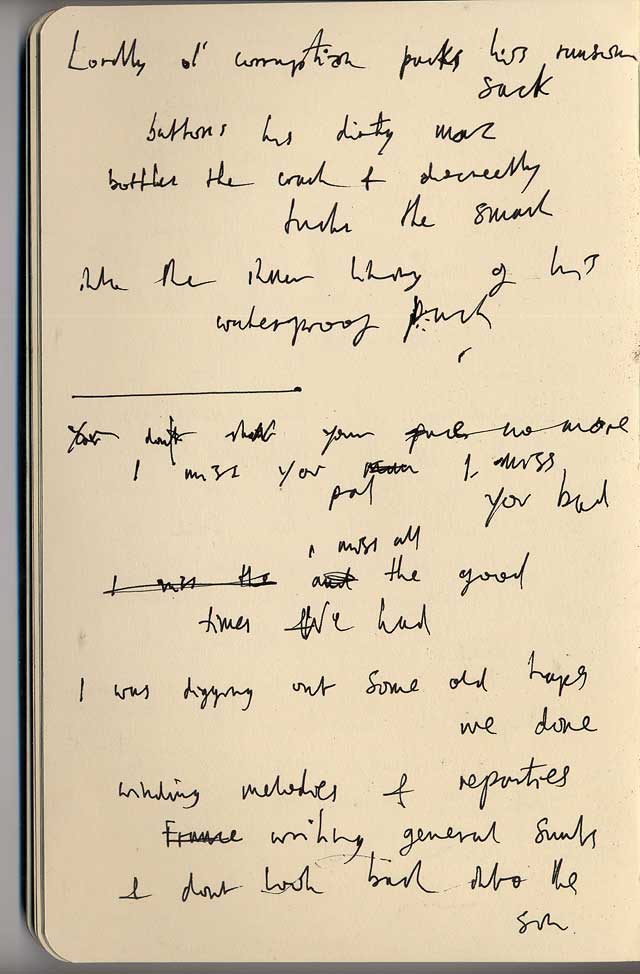 Lordly ol' corruption packs his
sack
buttons his dirty mac
bottles the crack & discreetly
tucks the smack
into the inner lining of his
waterproof
You don't your no more
I miss you I miss
pal you bad
I miss all
I miss the and the good
times We had
I was digging out some old tapes
we done
winding melodies & reparties
France writing general
& dont look back into the
sun.